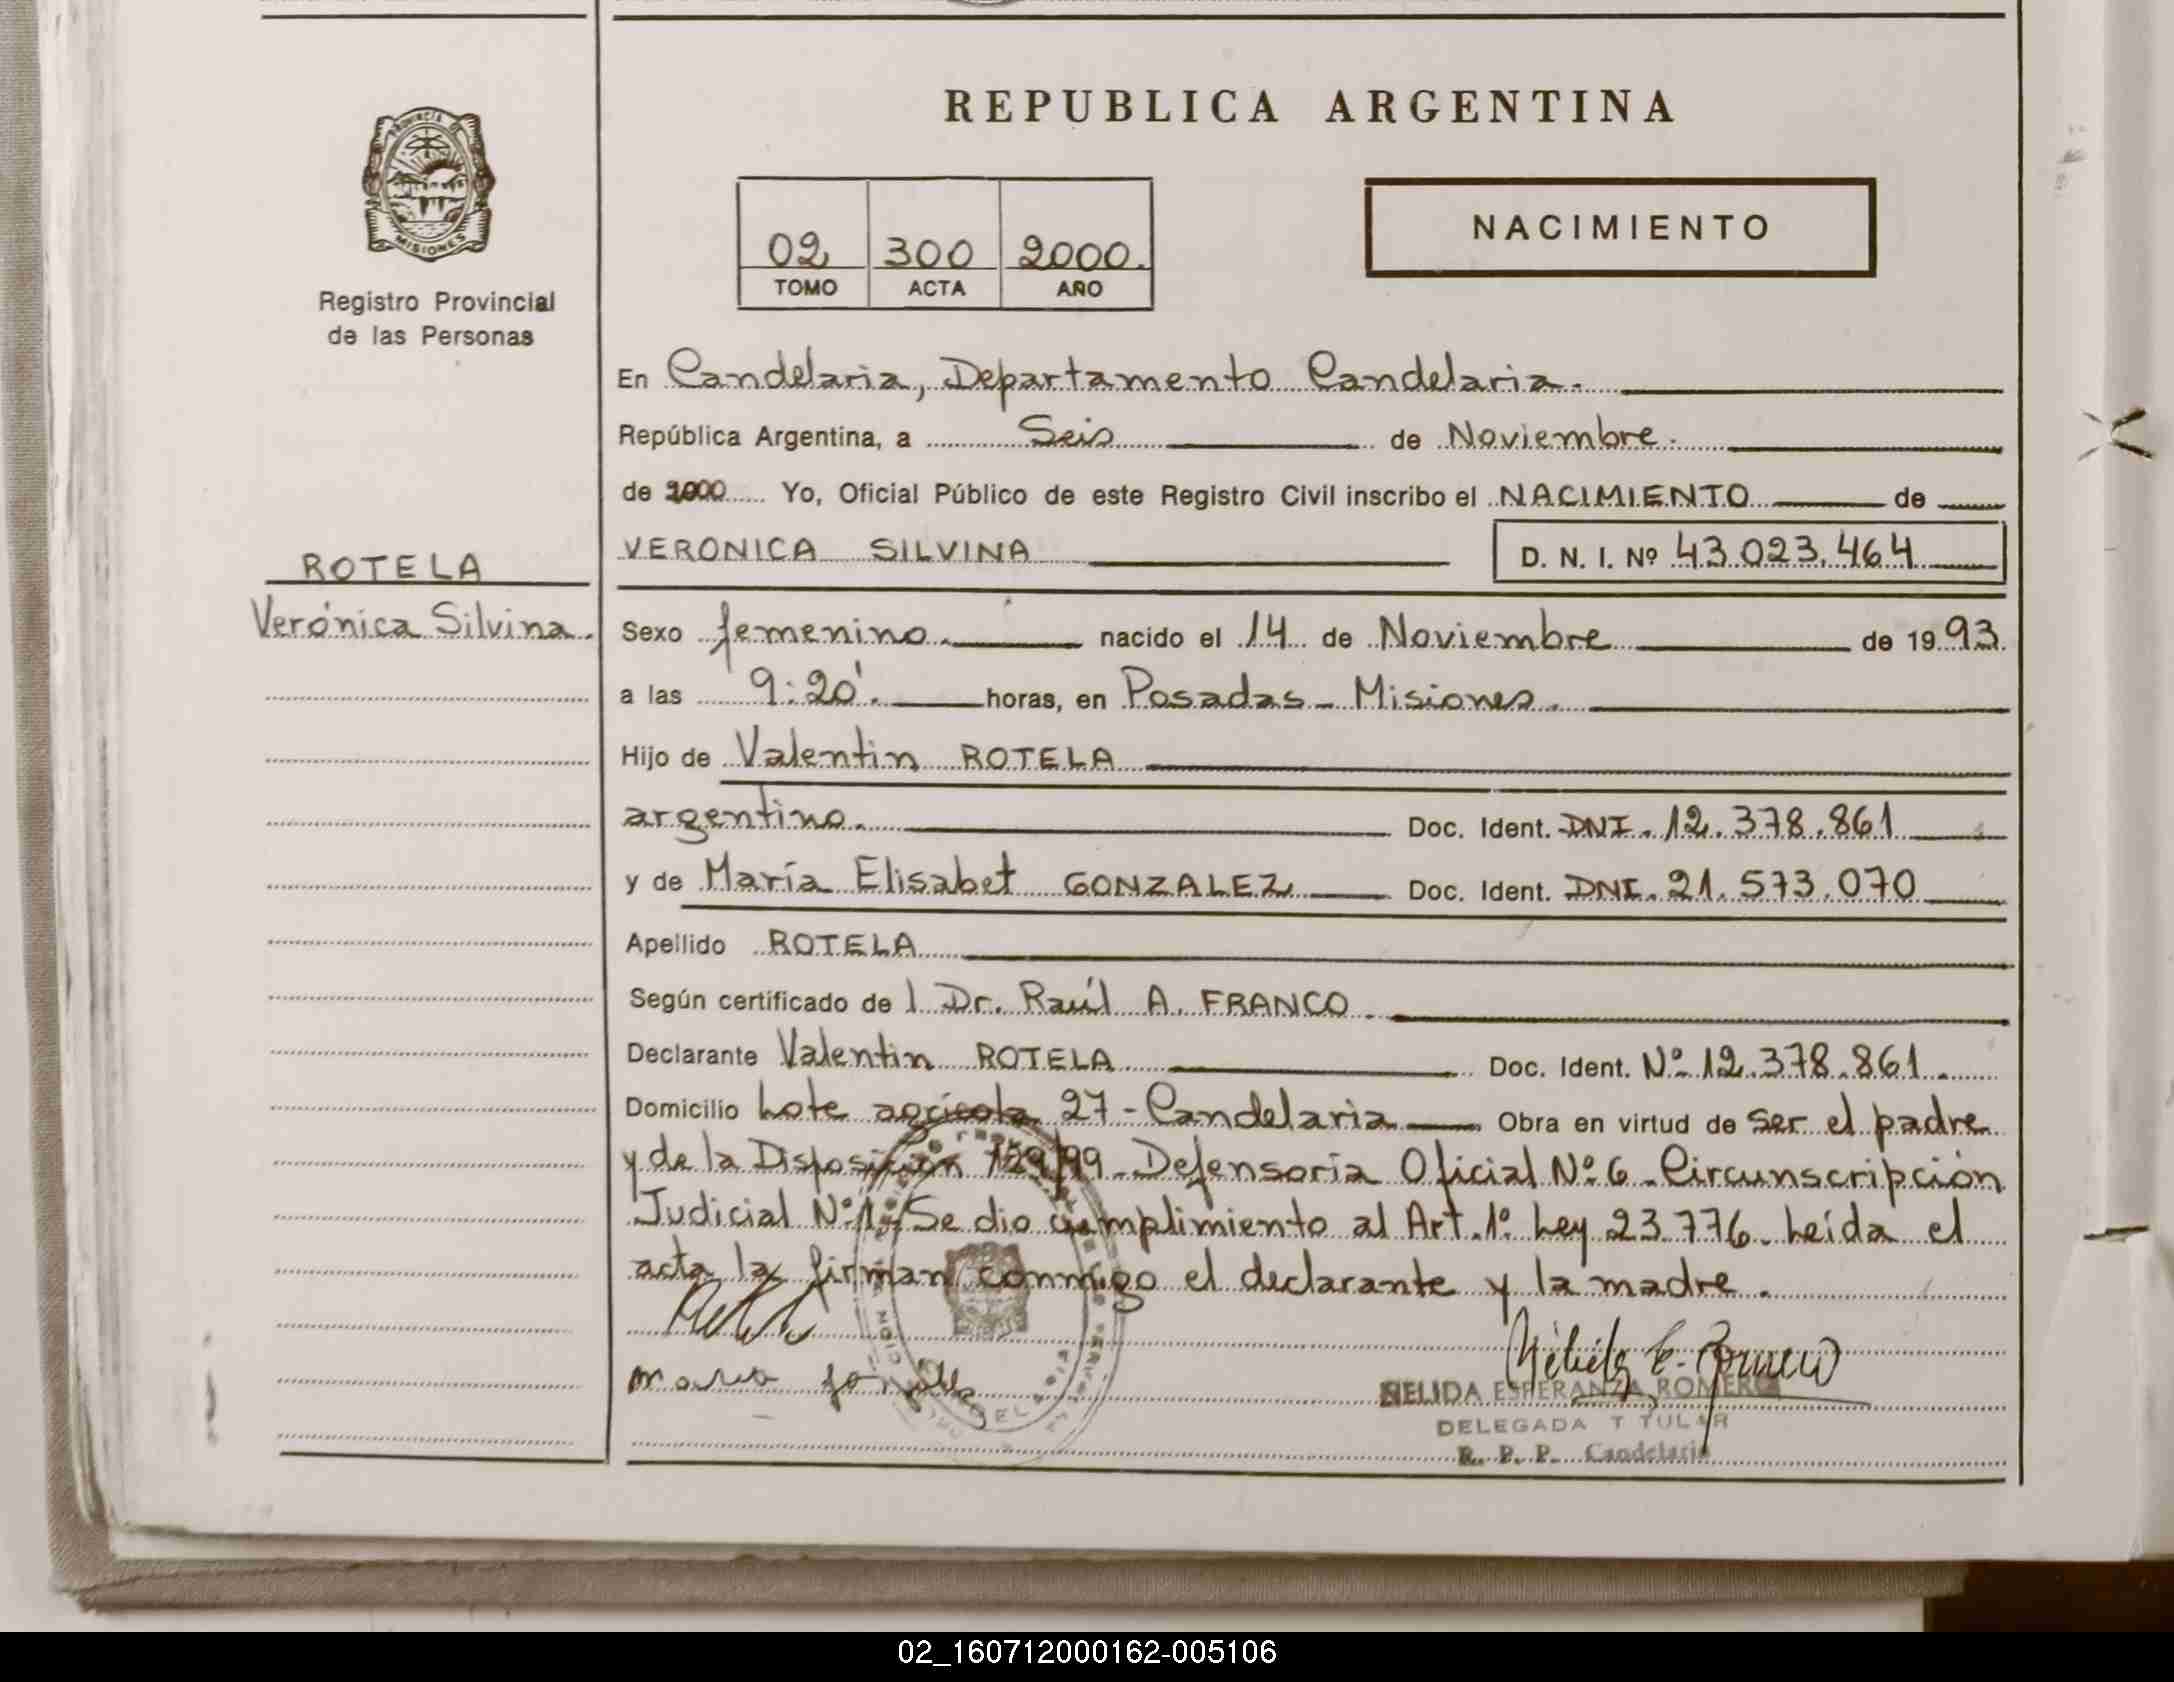 PROVINCIA DE
MISIONES
Registro Provincial
de las Personas
ROTELA
Verónica Silvina.
REPUBLICA ARGENTINA
02 300 2000.
TOMO ACTA AÑO
NACIMIENTO
En Candelaria, Departamento Candelaria.
República Argentina, a Seis de Noviembre.
de 2000 Yo, Oficial Público de este Registro Civil inscribo el NACIMIENTO de
VERONICA SILVINA D. N. I. Nº 43.023.464
Sexo femenino. nacido el 14 de Noviembre de 1993.
a las 9:20'. horas, en Posadas - Misiones.
Hijo de Valentin ROTELA
argentino. Doc. Ident. DNI. 12.378.861
y de María Elisabet GONZALEZ Doc. Ident. DNI. 21.573.070
Apellido ROTELA
Según certificado de l Dr. Raúl A. FRANCO.
Declarante Valentin ROTELA Doc. Ident. Nº 12.378.861.
Domicilio Lote agricola 27 - Candelaria Obra en virtud de ser el padre
y de la Disposición 129/99 - Defensoría Oficial Nº 6 - Circunscripción
Judicial Nº 1 - Se dio cumplimiento al Art. 1º Ley 23.776. Leída el
acta la firman conmigo el declarante y la madre.
Nélida E. Romero
NELIDA ESPERANZA ROMERO
DELEGADA T TULAR
R. P. P. Candelaria
02_160712000162-005106